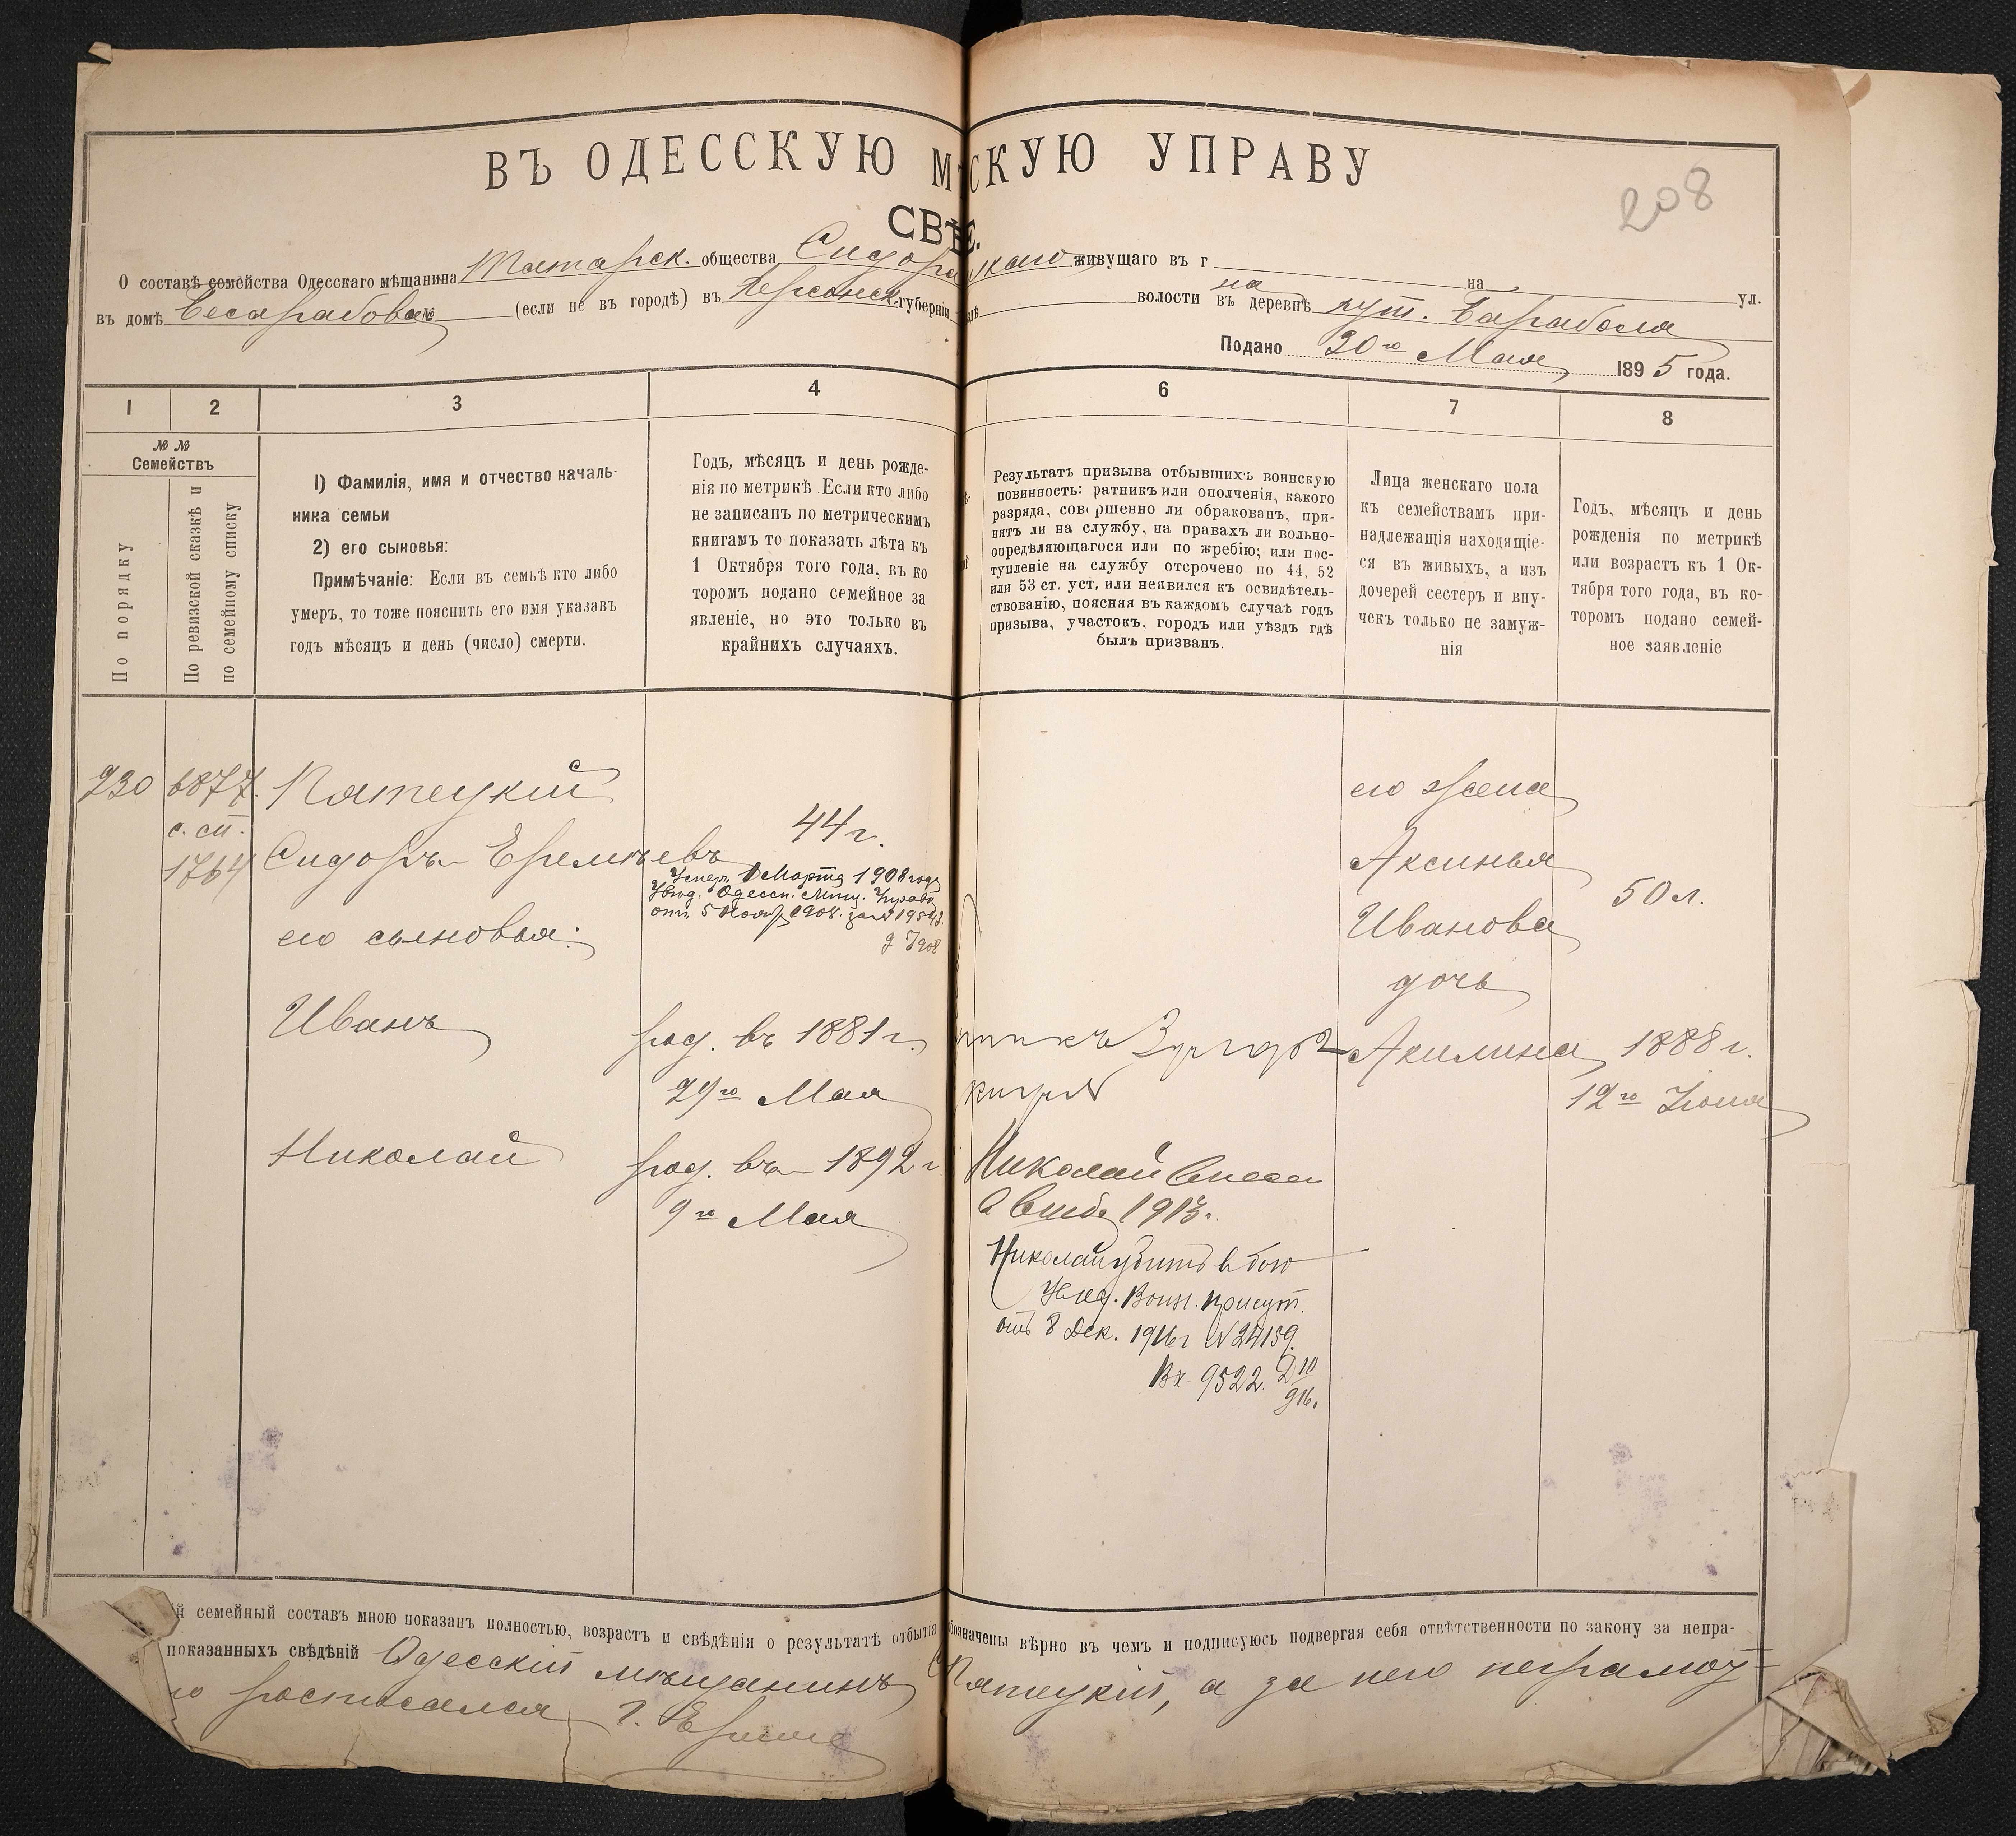 ВЪ ОДЕССКУЮ М СКУЮ УПРАВУ
208
СВѢ
О составѣ семейства Одесскаго мѣщанина Татарск. общества Сидора живущаго въ г на ул.
въ домѣ № (если не въ городѣ) въ Херсонск. губерніи волости въ деревнѣ на хут. Барабоя
Подано 30го Мая 1895 года.
1 2 3 4 6 7 8
№№ Семействъ
По порядку
По ревизской сказкѣ и по семейному списку
1) Фамилія, имя и отчество началь-
ника семьи
2) его сыновья:
Примѣчаніе: Если въ семьѣ кто либо
умеръ, то тоже пояснить его имя указавъ
годъ мѣсяцъ и день (число) смерти.
Годъ, мѣсяцъ и день рожде-
нія по метрикѣ Если кто либо
не записанъ по метрическимъ
книгамъ то показать лѣта къ
1 Октября того года, въ ко
торомъ подано семейное за
явленіе, но это только въ
крайнихъ случаяхъ.
Результатъ призыва отбывшихъ воинскую
повинность: ратникъ или ополченія, какого
разряда, совершенно ли обракованъ, при-
нятъ ли на службу, на правахъ ли вольно-
опредѣляющагося или по жребію; или пос-
тупленіе на службу отсрочено по 44, 52
или 53 ст. уст. или неявился къ освидѣтель-
ствованію, поясняя въ каждомъ случаѣ годъ
призыва, участокъ, городъ или уѣздъ гдѣ
былъ призванъ.
Лица женскаго пола
къ семействамъ при-
надлежащія находящіе-
ся въ живыхъ, а изъ
дочерей сестеръ и вну-
чекъ только не замуж-
нія
Годъ, мѣсяцъ и день
рожденія по метрикѣ
или возрастъ къ 1 Ок-
тября того года, въ ко-
торомъ подано семей-
ное заявленіе
230
6877
с. сп.
1764
Пятецкій
Сидоръ Еремѣевъ
его сыновья:
Иванъ
Николай
44 г.
Умеръ Марта 1908 года
Увѣд. Одесск. Мѣщ. Управы
отъ 5 Ноябр 1908. за №
род. въ 1881 г.
29го Мая
род. въ 1892 г.
9го Мая
Николай
1913.
Николай убитъ в бою
Увѣд. Воин. присут.
отъ 8 Дек. 1916 г №24159.
Вх. 9522. Д III
916.
его жена
Аксинья
Иванова
дочь
Акилина
50 л.
1888 г.
12го Іюня
й семейный составъ мною показанъ полностью, возрастъ и свѣдѣнія о результатѣ отбытія обозначены вѣрно въ чемъ и подписуюсь подвергая себя отвѣтственности по закону за непра-
показанныхъ свѣдѣній Одесскій мѣщанинъ С Пятецкій, а за него неграмот-
го росписался